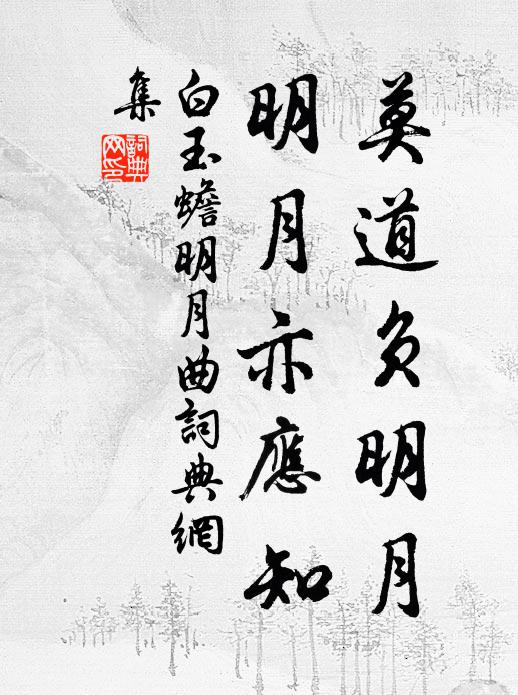 莫道負明月
明月亦應知
白玉蟾明月曲詞典網
集
詞典
網印